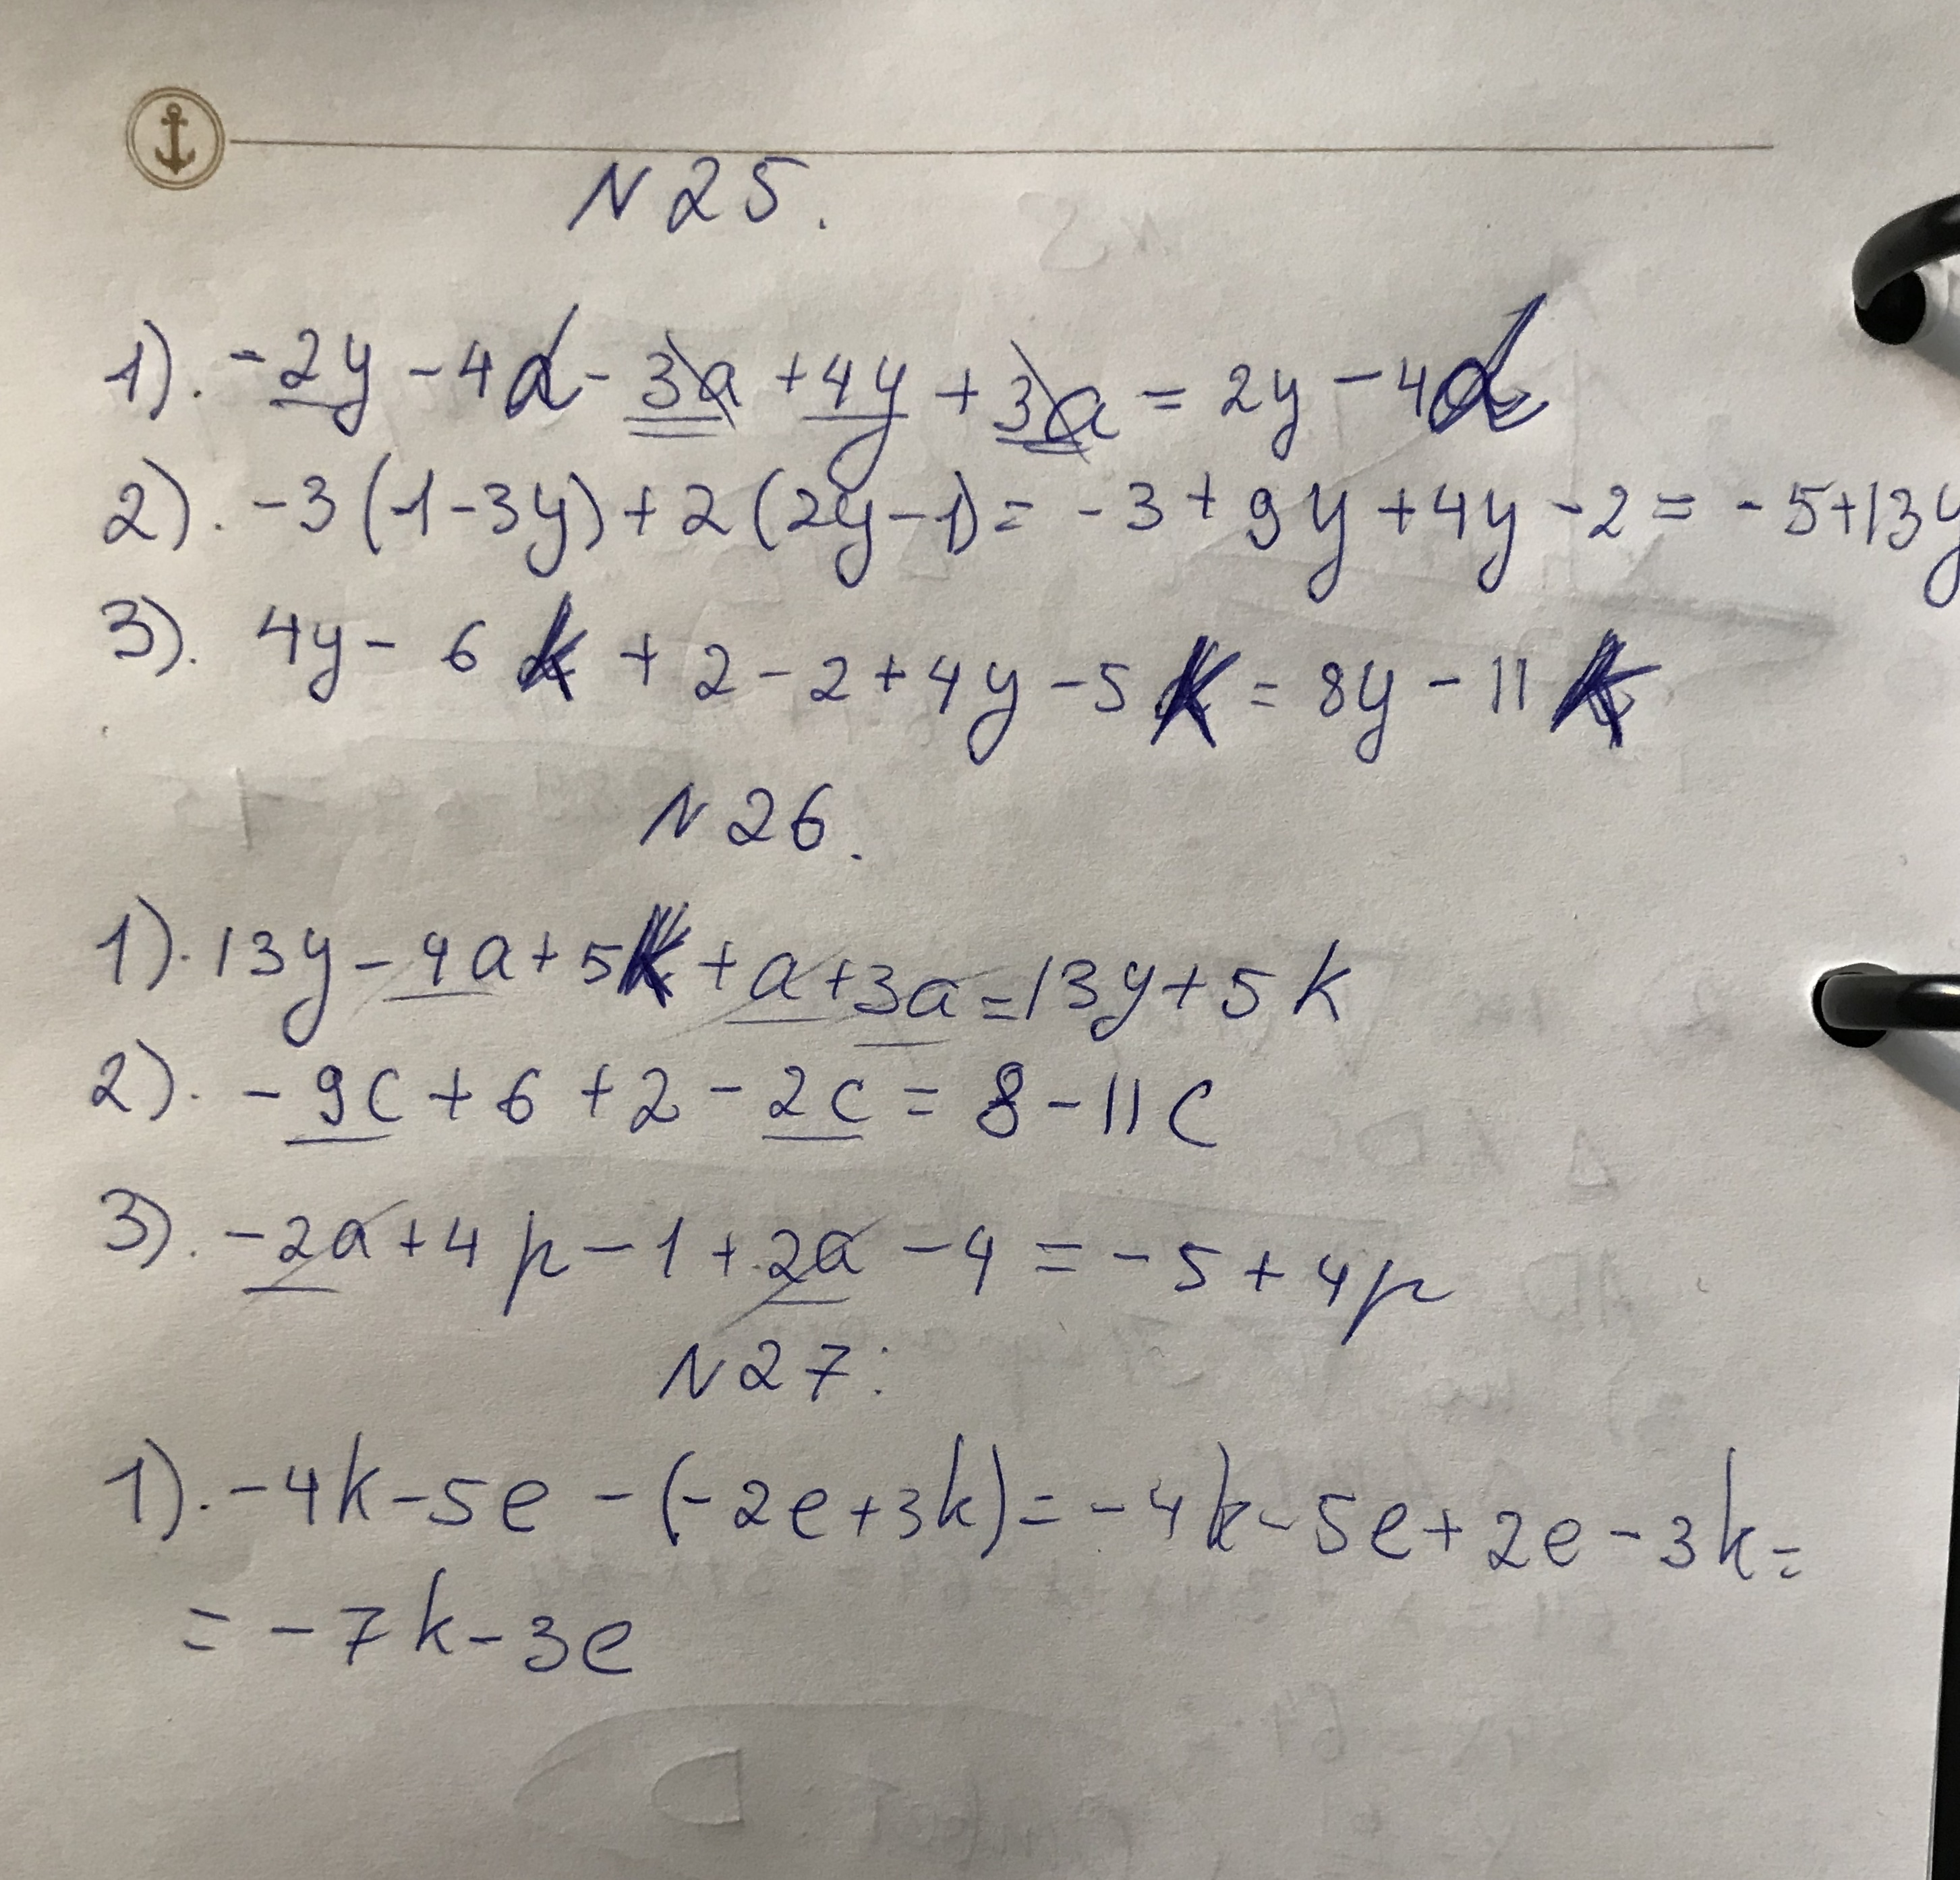 N 25.
1). -2y - 4d - 3a + 4y + 3a = 2y - 4d
2). -3(1-3y) + 2(2y-1) = -3 + 9y + 4y - 2 = -5+13y
3). 4y - 6k + 2 - 2 + 4y - 5k = 8y - 11k
N 26.
1). 13y - 4a + 5k + a + 3a = 13y + 5k
2). - 9c + 6 + 2 - 2c = 8 - 11c
3). -2a + 4p - 1 + 2a - 4 = -5 + 4p
N 27.
1). -4k - 5e - (-2e + 3k) = -4k - 5e + 2e - 3k =
= -7k - 3e